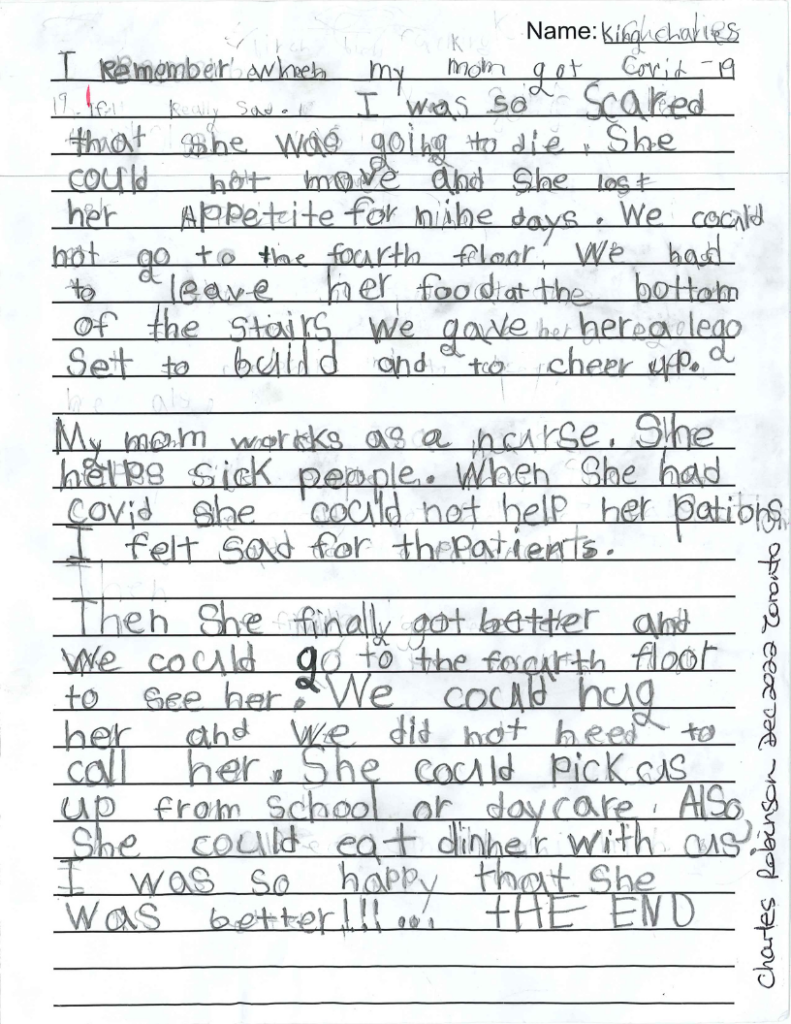 Name: King charles
I remember when my mom got Covid-19
19. I felt Really Sad. I was so Scared
that she was going to die. She
could not move and She lost
her Appetite for nine days. We could
not go to the fourth floor. We had
to leave her food at the bottom
of the stairs We gave her a lego
Set to build and to cheer up.
My mom works as a nurse. She
helps sick people. When She had
covid she could not help her pations
I felt sad for the patients.
Then She finally got better and
We could go to the fourth floor
to see her. We could hug
her and We did not need to
call her. She could pick us
up from school or daycare. Also
She could eat dinner with us.
I was so happy that She
was better!!!... tHE END
Charles Robinson Dec 2022 Toronto